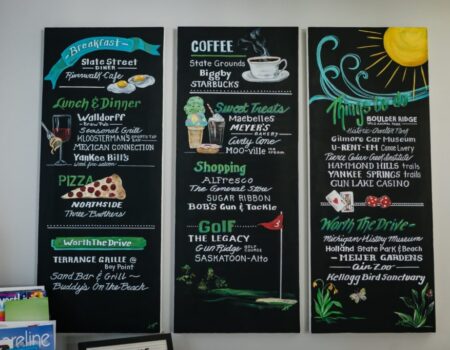 Breakfast
State Street
DINER
Riverwalk Cafe
Lunch & Dinner
Walldorff
Brew Pub
Seasonal Grill
KLOOSTERMAN'S SPORTS TAP
MEXICAN CONNECTION
YanKee Bill's
PIZZA
NORTHSIDE
Three Brothers
Worth The Drive
TERRANCE GRILLE @
Bay Point
Sand Bar & Grill
Buddy's On The Beach
COFFEE
State Grounds
Biggby
STARBUCKS
Sweet Treats
Maebelles
MEYER'S
BAKERY
MOO-ville
Shopping
ALFresco
The General Store
SUGAR RIBBON
BOB'S Gun & Tackle
Golf
THE LEGACY
Gun Ridge
SASKATOON-Alto
Things to do
BOULDER RIDGE
WILD ANIMAL PARK
Historic Charlton Park
Gilmore Car Museum
U-RENT-EM Canoe Livery
Pierce Cedar Creek Institute
HAMMOND HILLS trails
YANKEE SPRINGS trails
GUN LAKE CASINO
Worth The Drive
Michigan History Museum
Holland State Park & Beach
MEIJER GARDENS
Air Zoo
Kellogg Bird Sanctuary
oreline